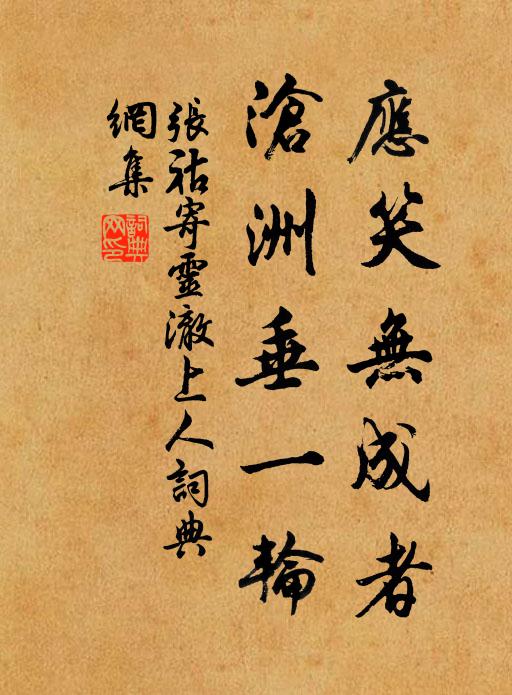 應笑無成者
滄洲垂一輪
張祜寄靈澈上人詞典
網集
詞典網印